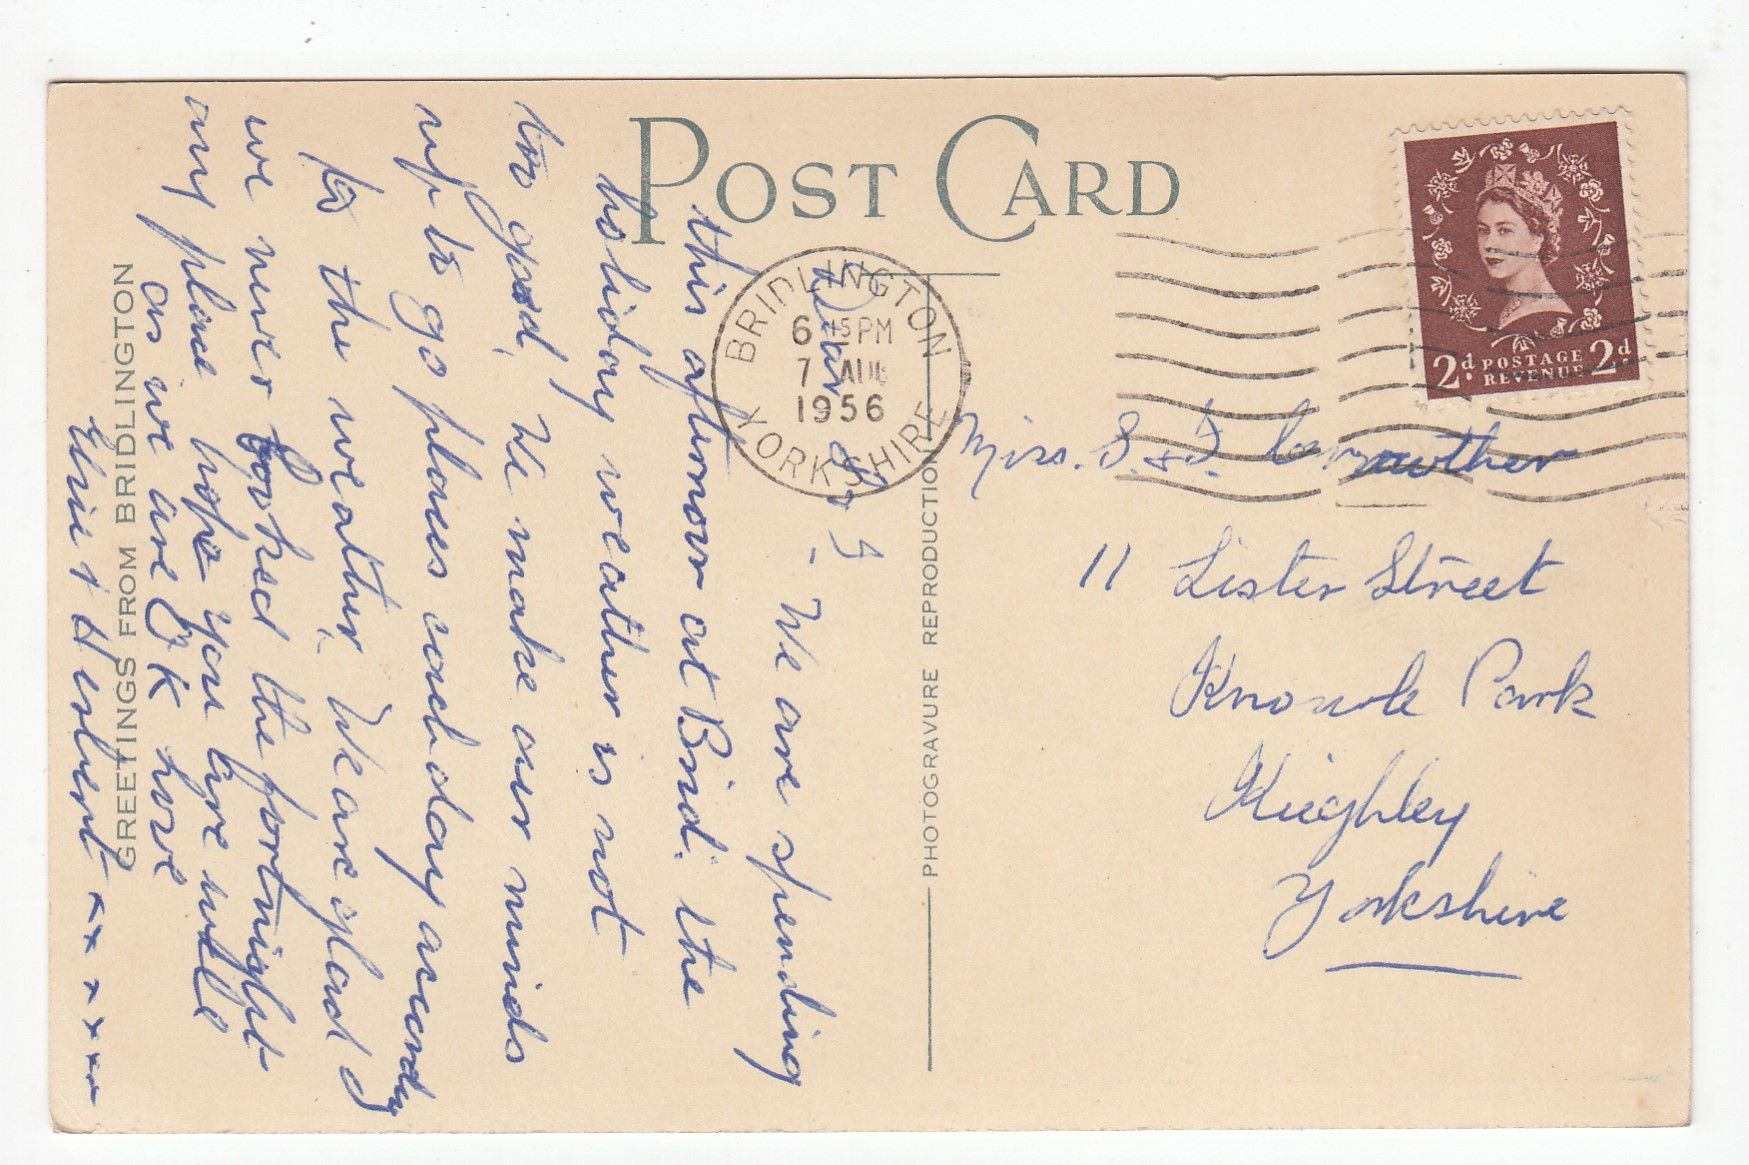 POST CARD
BRIDLINGTON
6 45 PM
7 AUG
1956
YORKSHIRE
2d. POSTAGE 2d.
REVENUE
GREETINGS FROM BRIDLINGTON
PHOTOGRAVURE REPRODUCTION
Dear S & J
- We are spending
this afternoon at Brid. the
holiday weather is not
too good, We make our minds
up to go places each day according
to the weather. We are glad
we never booked the fortnight
any place hope you are well
as we are OK here
Elsie & Herbert x x x x x x
Miss. S. & J.
11 Lister Street
Knowle Park
Keighley
Yorkshire